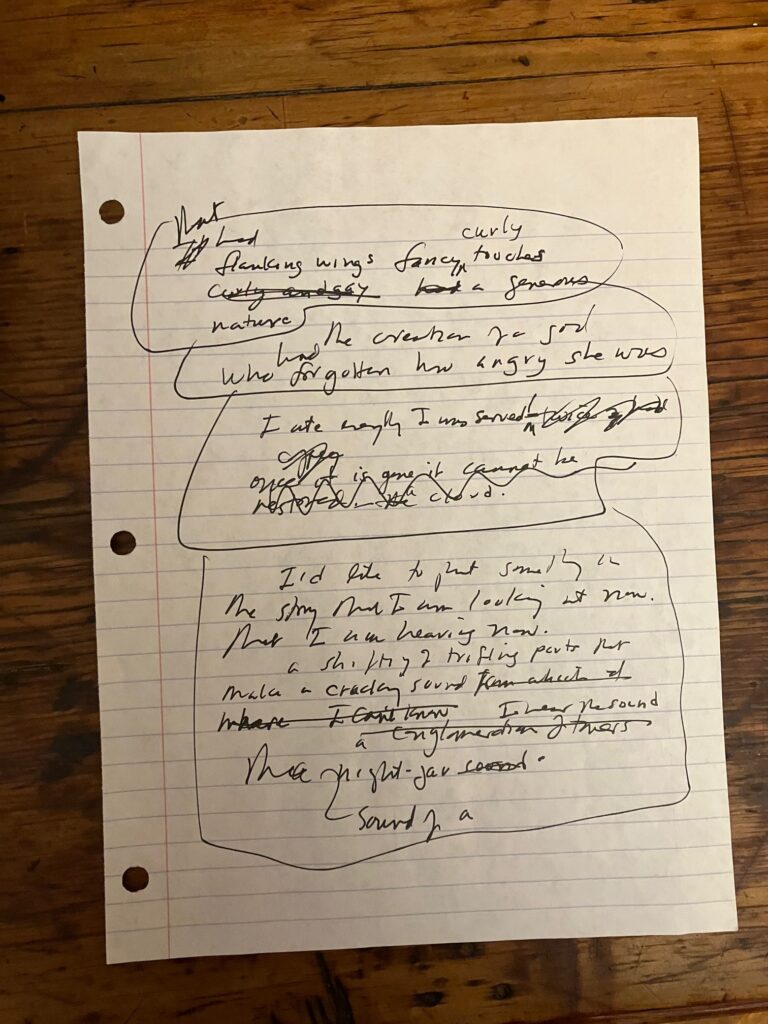 that
had curly
flanking wings fancy touches
curly and gay had a generous
nature
the creation of a god
who had forgotten how angry she was
I ate everything I was served
once it is gone it cannot be
restored. the cloud.
I'd like to put something in
the story that I am looking at now.
that I am hearing now.
a shifting of trifling parts that
make a cracking sound from wheels of
where I can't know I hear the sound
a conglomeration of
The night-jar sound.
sound of a